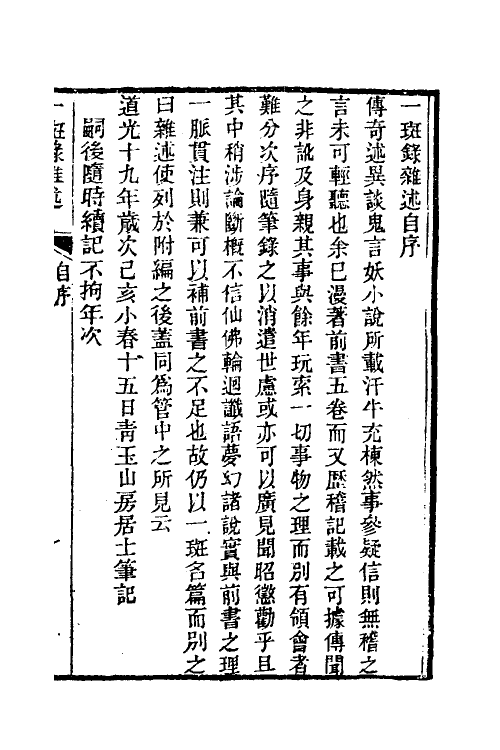 一班錄雜述自序
傳奇述異談鬼言妖小說所載汗牛充棟然事參疑信則無稽之
言未可輕聽也余已漫著前書五卷而又歷稽記載之可據傳聞
之非訛及身親其事與餘年玩索一切事物之理而別有領會者
難分次序隨筆錄之以消遣世慮或亦可以廣見聞昭懲勸乎且
其中稍涉論斷概不信仙佛輪迴讖語夢幻諸說實與前書之理
一脈貫注則兼可以補前書之不足也故仍以一斑名篇而別之
曰雜述使列於附編之後蓋同為管中之所見云
道光十九年歲次己亥小春十五日青玉山房居士筆記
嗣後隨時續記不拘年次
一斑錄雜述
自序